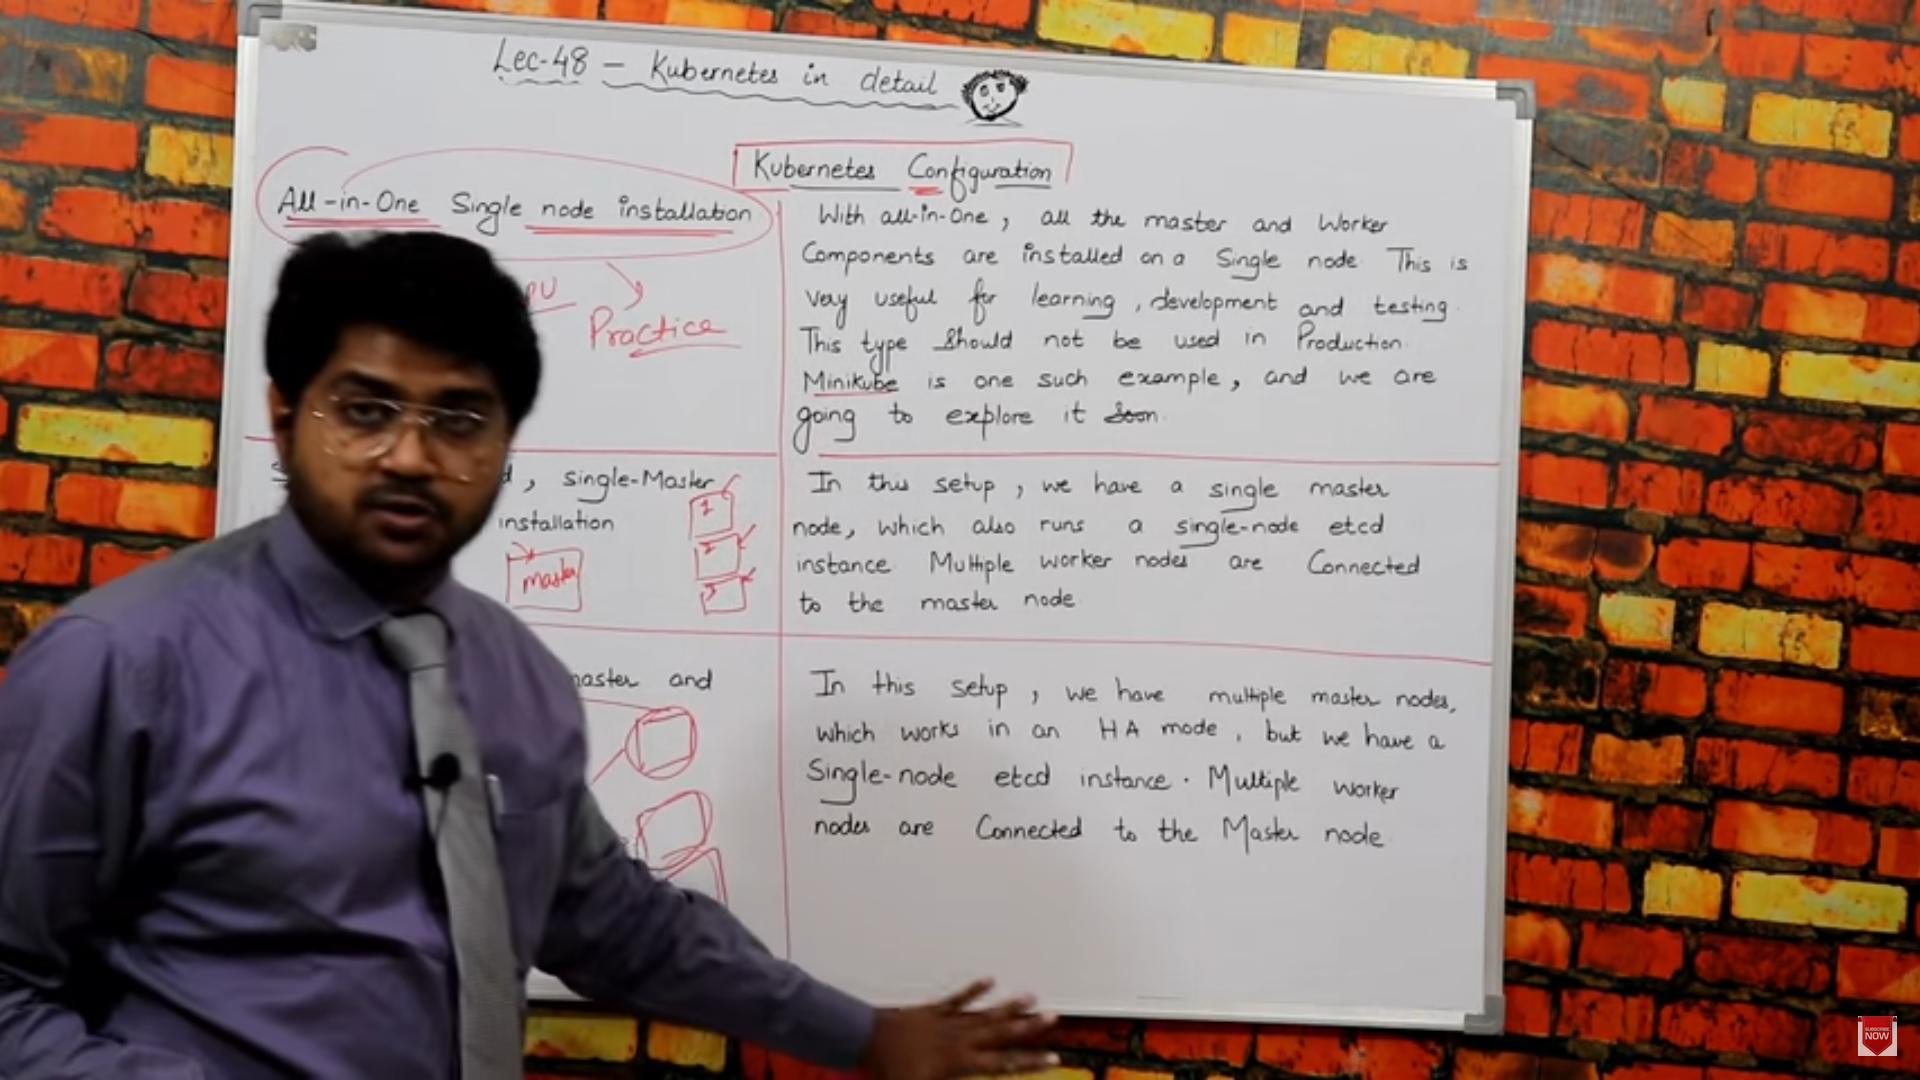 Lec-48 – Kubernetes in detail
Kubernetes Configuration
All-in-One Single node installation
Practice
With all-in-One, all the master and Worker
Components are installed on a Single node. This is
very useful for learning, development and testing.
This type Should not be used in Production.
Minikube is one such example, and we are
going to explore it Soon.
, single-Master
installation
master
1
2
3
In this setup, we have a single master
node, which also runs a single-node etcd
instance. Multiple worker nodes are Connected
to the master node.
and
In this setup, we have multiple master nodes,
which works in an HA mode, but we have a
Single-node etcd instance. Multiple worker
nodes are Connected to the Master node.
SUBSCRIBE
NOW